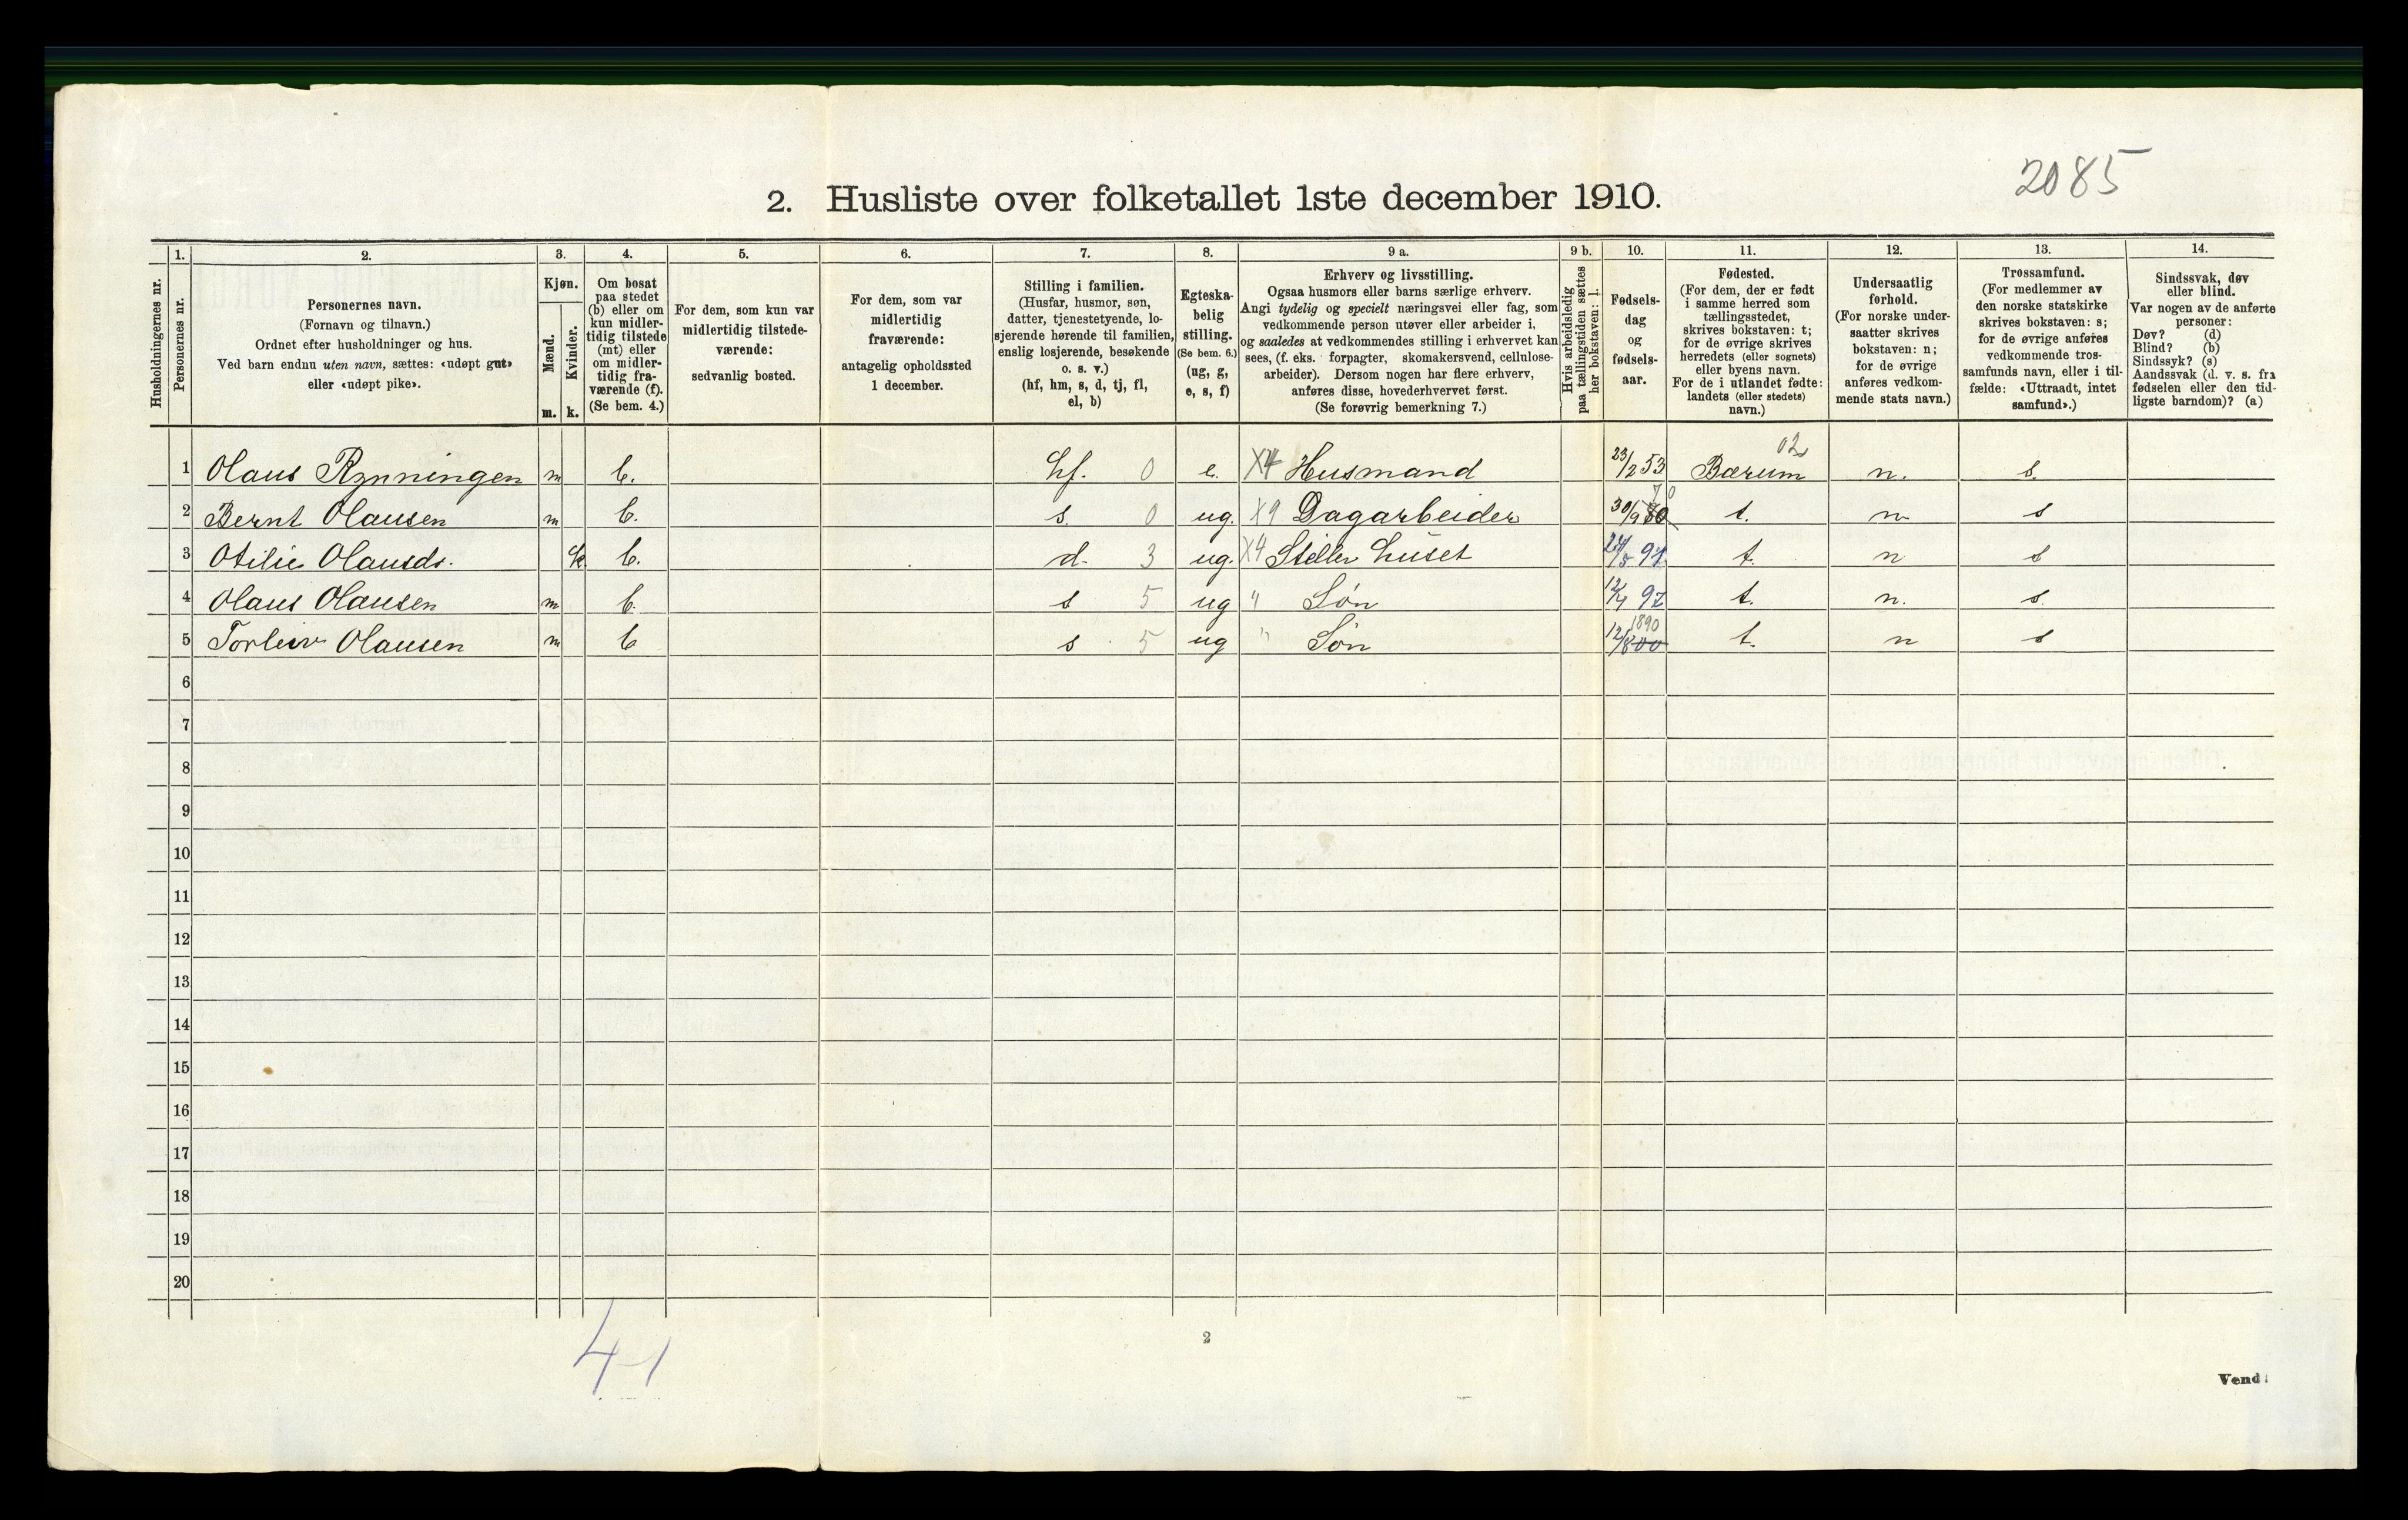 2085
2. Husliste over folketallet 1ste december 1910.
Husholdningernes nr.
1. Personernes nr.
2. Personernes navn.
(Fornavn og tilnavn.)
Ordnet efter husholdninger og hus.
Ved barn endnu uten navn, sættes: «udøpt gut»
eller «udøpt pike».
3. Kjøn.
Mænd. m.
Kvinder. k.
4. Om bosat
paa stedet
(b) eller om
kun midler-
tidig tilstede
(mt) eller
om midler-
tidig fra-
værende (f).
(Se bem. 4.)
5. For dem, som kun var
midlertidig tilstede-
værende:
sedvanlig bosted.
6. For dem, som var
midlertidig
fraværende:
antagelig opholdssted
1 december.
7. Stilling i familien.
(Husfar, husmor, søn,
datter, tjenestetyende, lo-
sjerende hørende til familien,
enslig losjerende, besøkende
o. s. v.)
(hf, hm, s, d, tj, fl,
el, b)
8. Egteska-
belig
stilling.
(Se bem. 6.)
(ug, g,
e, s, f)
9 a. Erhverv og livsstilling.
Ogsaa husmors eller barns særlige erhverv.
Angi tydelig og specielt næringsvei eller fag, som
vedkommende person utøver eller arbeider i,
og saaledes at vedkommendes stilling i erhvervet kan
sees, (f. eks. forpagter, skomakersvend, cellulose-
arbeider). Dersom nogen har flere erhverv,
anføres disse, hovederhvervet først.
(Se forøvrig bemerkning 7.)
9 b. Hvis arbeidsledig
paa tællingstiden sættes
her bokstaven: l.
10. Fødsels-
dag
og
fødsels-
aar.
11. Fødested.
(For dem, der er født
i samme herred som
tællingsstedet,
skrives bokstaven: t;
for de øvrige skrives
herredets (eller sognets)
eller byens navn.
For de i utlandet fødte:
landets (eller stedets)
navn.)
12. Undersaatlig
forhold.
(For norske under-
saatter skrives
bokstaven: n;
for de øvrige
anføres vedkom-
mende stats navn.)
13. Trossamfund.
(For medlemmer av
den norske statskirke
skrives bokstaven: s;
for de øvrige anføres
vedkommende tros-
samfunds navn, eller i til-
fælde: «Uttraadt, intet
samfund».)
14. Sindssvak, døv
eller blind.
Var nogen av de anførte
personer:
Døv? (d)
Blind? (b)
Sindssyk? (s)
Aandssvak (d. v. s. fra
fødselen eller den tid-
ligste barndom)? (a)
1 Olaus Rynningen m b. hf. 0 e. X4 Husmand 23/2 53 Bærum 02 n. s.
2 Bernt Olausen m b. s. 0 ug. X9 Dagarbeider 30/9 80 70 t. n s
3 Otilie Olausds. k b. d. 3 ug. X4 Steller huset t. n s
4 Olaus Olausen m b. s 5 ug " Søn t. n. s.
5 Torleiv Olausen m b s 5 ug " Søn 12/8 00 1890 t. n s
6
7
8
9
10
11
12
13
14
15
16
17
18
19
20
41
2
Vend!